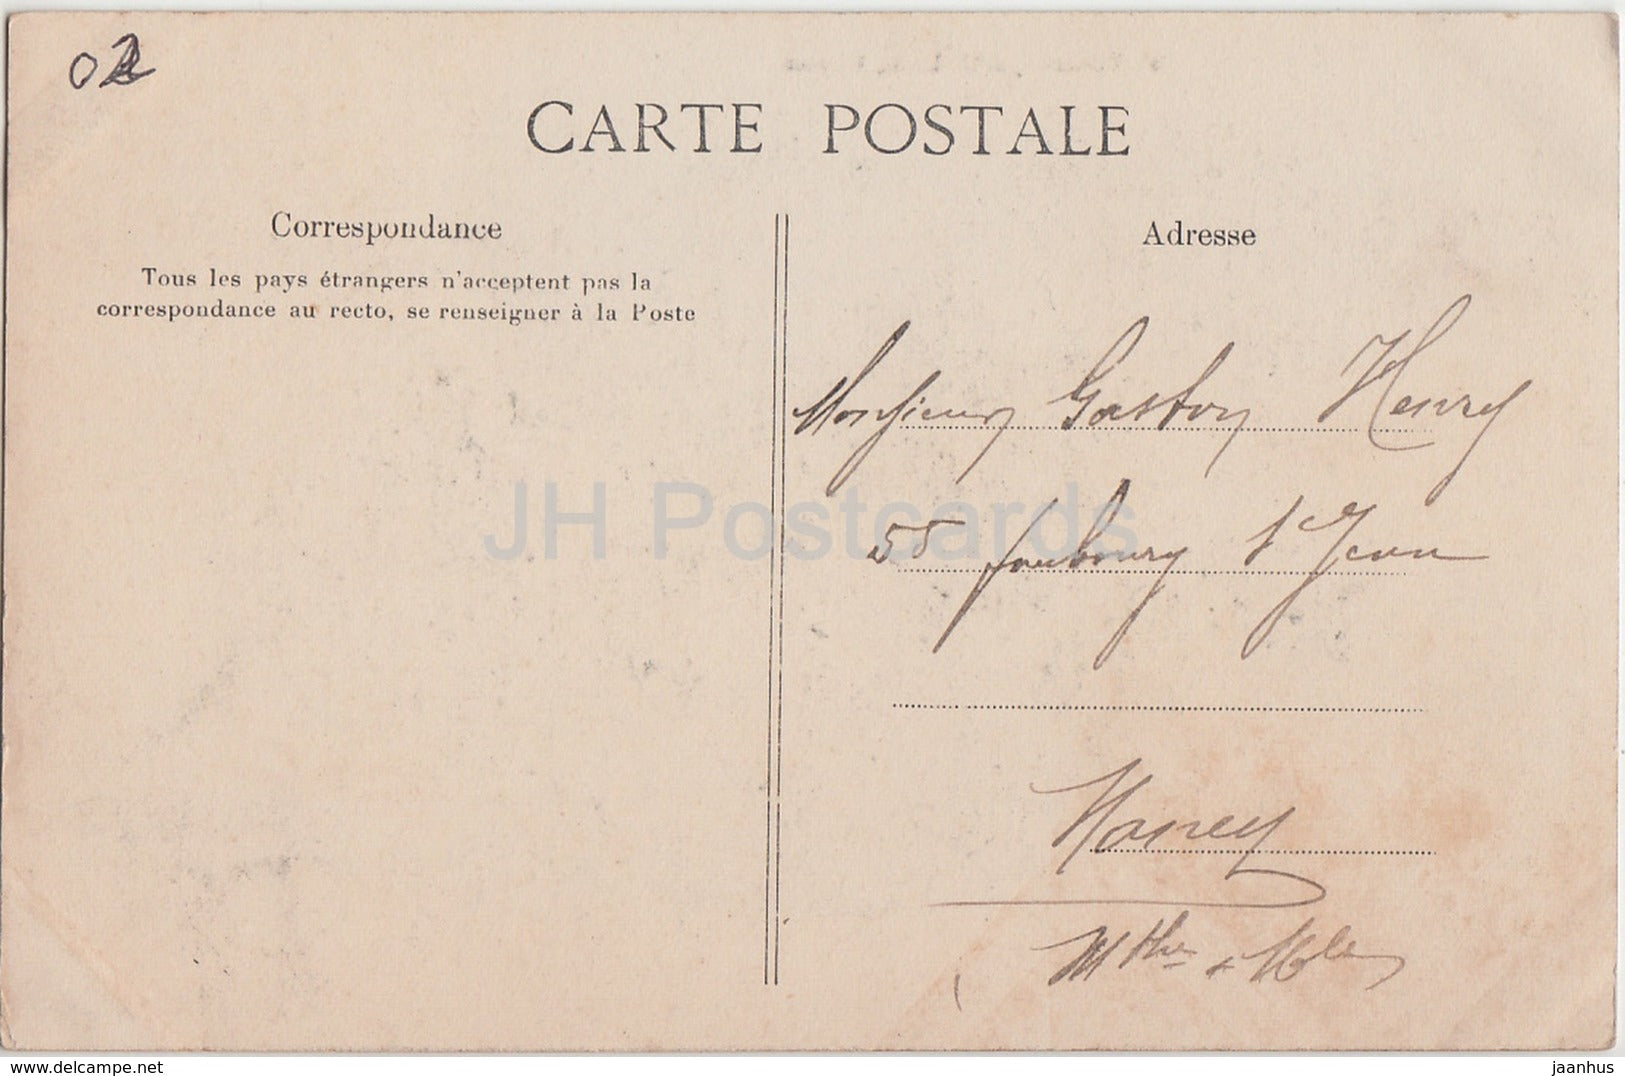 02
CARTE POSTALE
Correspondance
Tous les pays étrangers n'acceptent pas la
correspondance au recto, se renseigner à la Poste
Adresse
Monsieur Gaston Henry
55 faubourg St Jean
Nancy
Mthe & Mle
JH Postcards
hippostcard.com
jaanhus